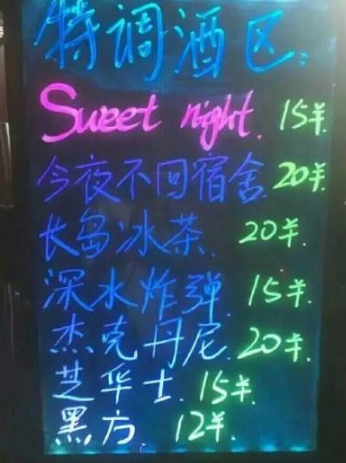 特调酒区:
Sweet night. 15羊.
今夜不回宿舍 20羊
长岛冰茶. 20羊.
深水炸弹. 15羊.
杰克丹尼. 20羊.
芝华士. 15羊.
黑方. 12羊.